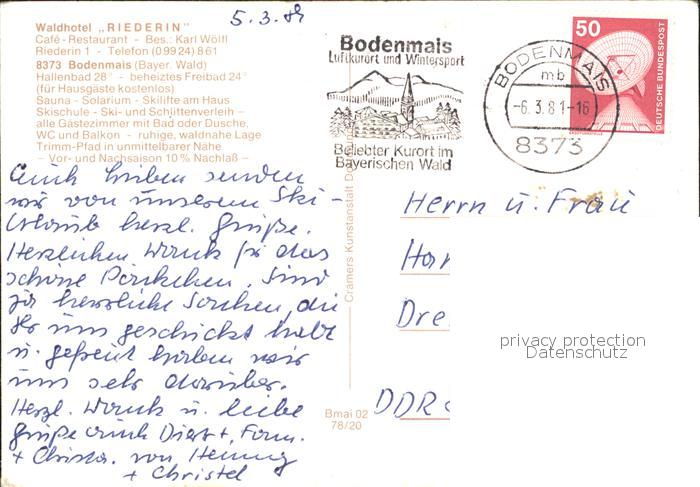 5.3.81
Waldhotel „RIEDERIN"
Café - Restaurant - Bes.: Karl Wölfl
Riederin 1 - Telefon (09924) 861
8373 Bodenmais (Bayer. Wald)
Hallenbad 28° - beheiztes Freibad 24°
(für Hausgäste kostenlos)
Sauna - Solarium - Skilifte am Haus
Skischule - Ski- und Schlittenverleih –
alle Gästezimmer mit Bad oder Dusche,
WC und Balkon - ruhige, waldnahe Lage
Trimm-Pfad in unmittelbarer Nähe
– Vor- und Nachsaison 10% Nachlaß –
Euch Lieben senden
wir von unserem Ski-
Urlaub herzl. Grüße.
Herzlichen Dank für das
schöne Päckchen. Sind
ja herrliche Sachen, die
Ihr uns geschickt habt
u. gefreut haben wir
uns sehr darüber.
Herzl. Dank u. liebe
Grüße auch Diet+, Fam.
+ Christa. von Henning
+ Christel
Bodenmais
Luftkurort und Wintersport
Beliebter Kurort im
Bayerischen Wald
BODENMAIS
mb
-6.3.81-16
8373
50
DEUTSCHE BUNDESPOST
Cramers Kunstanstalt Do
Bmai 02
78/20
Herrn u. Frau
Har
Dre
DDR
privacy protection
Datenschutz